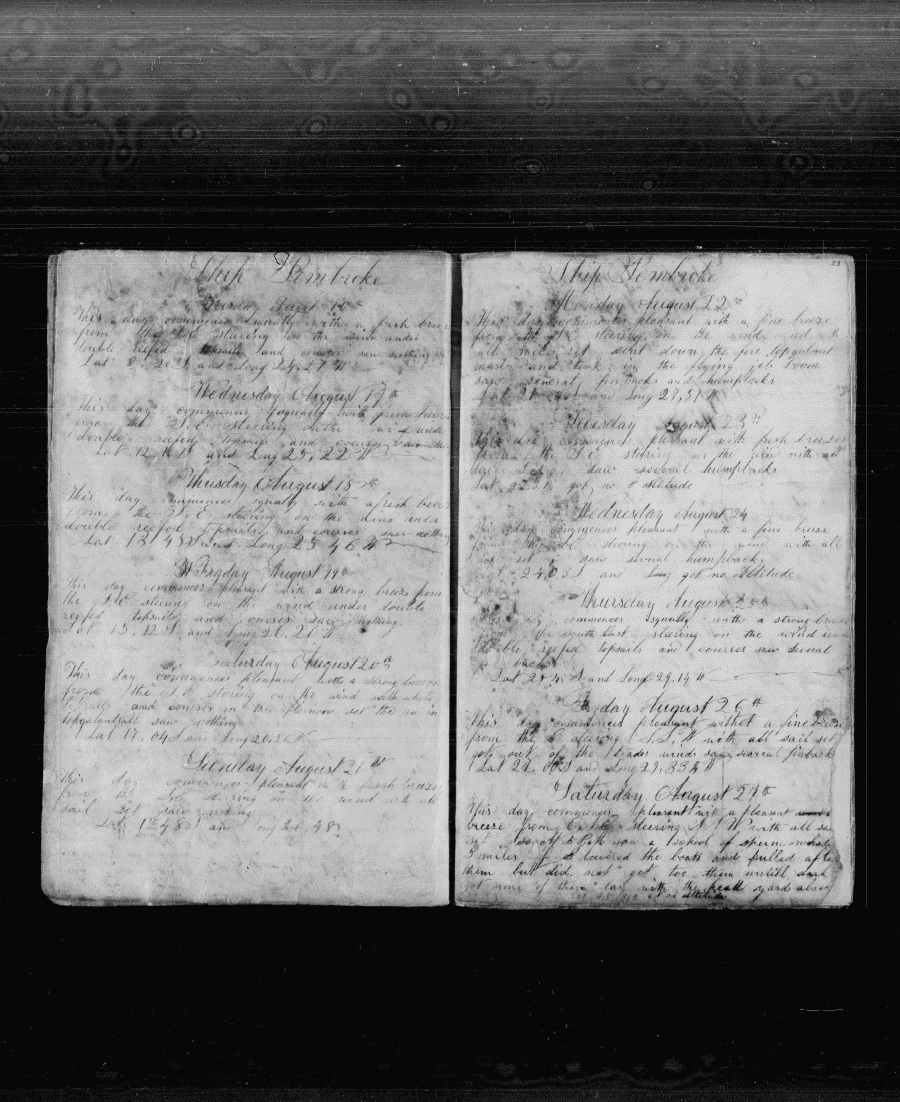 Ship Pembroke
Tuesday August 16th
This day commences squally with a fresh breeze
from the steering on the wind under
double reefed topsails and courses saw nothing
Lat 8, 20 S and Long 24, 27 W
Wednesday August 17th
This day commences squally with fresh breeze
from the S.E steering on the wind under
double reefed topsails and courses
Lat 12, S and Long 25, 22 W
Thursday August 18th
This day commences squally with a fresh breeze
from the S.E steering on the wind under
double reefed topsails and courses saw nothing
Lat 13 45 S and Long 25 46 W
Friday August 19th
This day commences pleasant with a strong breeze from
the S.E steering on the wind under double
reefed topsails and courses saw nothing
Lat 15, 12 S and Long 26, 21 W
Saturday August 20th
This day commences pleasant with a strong breeze
from the S.E steering on the wind with whole
topsails and courses in the afternoon set the main
topgalantsail saw nothing
Lat 17, 04 S and Long 26, W
Sunday August 21th
This day commences pleasant with a fresh breeze
from the steering on the wind with all
sail set saw nothing
Lat 48 S and Long 48
23
Ship Pembroke
Monday August 22th
This day commences pleasant with a fine breeze
from the S.E steering on the wind with
all sail set sent down the fore topgalant
mast and took in the flying jib boom
saw several finbacks and humpbacks
Lat 21 S and Long 27, 31 W
Tuesday August 23th
This day commences pleasant with fresh breezes
from the S.E steering on the wind with all
sail set saw several humpbacks
Lat got no Altitude
Wednesday August 24
This day commences pleasant with a fine breeze
from the steering on the wind with all
sail set saw several humpbacks
Lat 24,03 S and Long got no Altitude
Thursday August 25th
This day commences squally with a strong breeze
from the south East stearing on the wind under
double reefed topsails and courses saw several
backs
Lat 2 4 S and Long 29,14 W
Friday August 26th
This day commences pleasant with a fine breeze
from the E steering S.S.W with all sail set
got out of the trades winds saw several finback
Lat 27, 00 S and Long 29, 33 W
Saturday August 27th
This day commences pleasant with a pleasant
breeze from E.N.E steering S.S.W with all sail
set saw a school of sperm whale
5 miles off lowered the boats and pulled after
them but did not get too them untill dark
got none of them lay with the head yards aback
no altitude